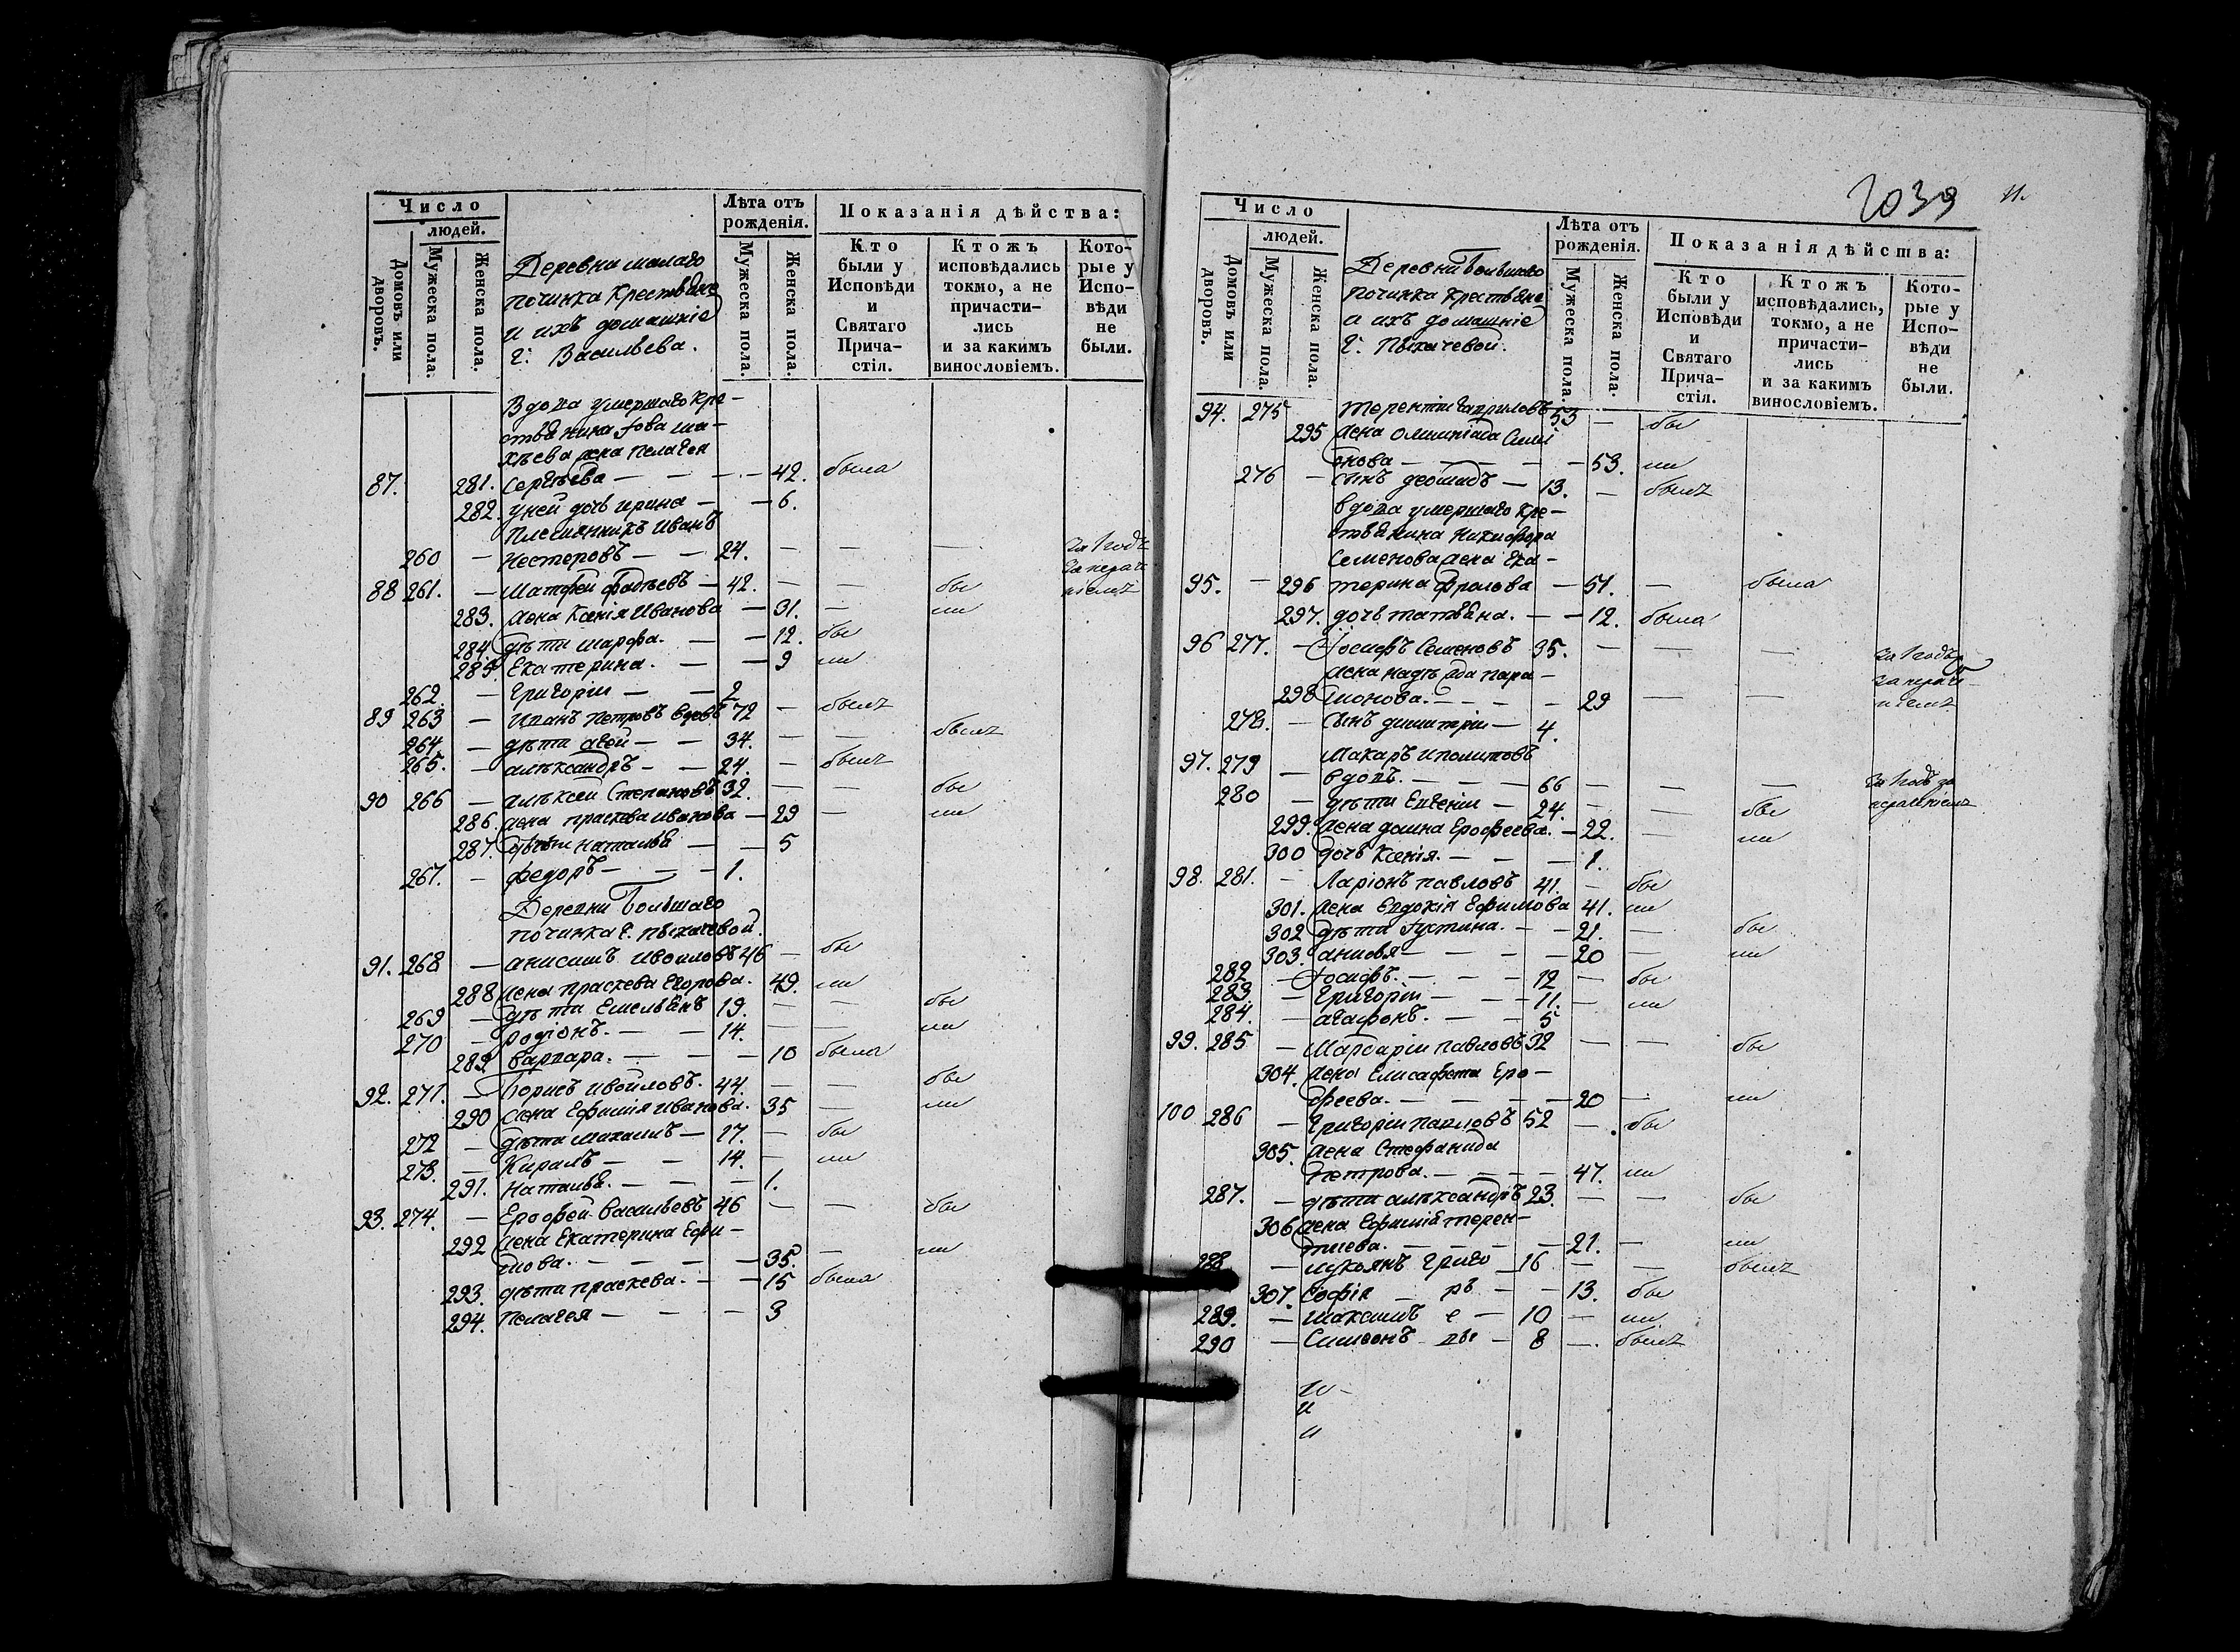 Число
людей.
Домовъ или дворовъ.
Мужеска пола.
Женска пола.
Деревни малаго
починка крестьяне
и ихъ домашніе
г: Васильева.
Лѣта отъ рожденія.
Мужеска пола.
Женска пола.
Показанія дѣйства:
Кто были у Исповѣди и Святаго Причастія.
Ктожъ исповѣдались токмо, а не причастились и за какимъ винословіемъ.
Которые у Исповѣди не были.
Вдова умершаго кре-
стьянина
жена Пелагея
87. 281. Сергѣева — — — 42. была
282. у ней дочь Ирина — — 6.
Племянникъ Иванъ
260 — Нестеровъ — — 24. — — — за 1 годъ
88 261. — Матфей Фадѣевъ — 42. — — бы
283. жена Ксенія Иванова — 31. — ли
284. дѣти Марфа. — — 12. бы
285. Екатерина. — — 9 ли
262. — Григорій — — 2
89 263 — Иванъ Петровъ вдовъ 72 — былъ
264. — дѣти Агей — — 34. — — былъ
265. — Александръ — — 24. — былъ
90 266 — Алексѣй Степановъ 32. — — бы
286. жена Праскева Иванова — 29 — ли
287. дѣти Наталья — — 5
267. — Федоръ — — — 1.
Деревни Большаго
починка г. Пыхачевой.
91. 268 — Анисимъ Ивойловъ 46 — бы
288 жена Праскева Егорова. 49. ли
269 — дѣти Емельянъ 19. — — бы
270 — Родіонъ. — — 14. — — ли
289. Варвара. — — — 10 была
92. 271. — Борисъ Ивойловъ. 44. — — бы
290 жена Ефимія Иванова. 35 — ли
272 — дѣти Максимъ — 17. — бы
273. — Кирилъ — — 14. — ли
291. Наталья. — — — 1.
93. 274. — Ерофей Васильевъ 46 — — бы
292 жена Екатерина Ефи-
мова. — — — — 35. — ли
293. дѣти Праскева. — — 15 была
294. Пелагея — — — 3
2039 11.
Число
людей.
Домовъ или дворовъ.
Мужеска пола.
Женска пола.
Деревни Большаго
починка крестьяне
и ихъ домашніе
г: Пыхачевой.
Лѣта отъ рожденія.
Мужеска пола.
Женска пола.
Показанія дѣйства:
Кто были у Исповѣди и Святаго Причастія.
Ктожъ исповѣдались, токмо, а не причастились и за какимъ винословіемъ.
Которые у Исповѣди не были.
94. 275 Терентій Гавриловъ 53 — бы
295 жена Олимпіада Сим
онова — — — — — 53. ли
276 — сынъ — 13. — былъ
вдова умершаго кре-
стьянина Никифора
Семенова жена Ека-
95. — 296 терина Фролова — 51. — была
297. дочь Татьяна. — — 12. была
96 277. — Іосифъ Семеновъ 35. — — — за 1 годъ
жена Надежда Пара-
298 монова. — — — — 29 — —
278. — сынъ Димитрій — 4.
97. 279 — Макаръ Иполитовъ
вдовъ. — — — 66 — — — за 1 годъ за
280 — дѣти Евгеній — 24. — — бы
299. жена Домна Ерофеева. — 22. — ли
300 дочь Ксенія. — — — 1.
98. 281. — Ларіонъ Павловъ 41. — бы
301. жена Евдокія Ефимова 41. ли
302 дѣти Іустина. — — 21. — бы
303. — — — 20 — ли
282 — Іосифъ. — — — 12 — бы
283. — Григорій — — — 11. — ли
284. — Агафонъ. — — 5
99. 285 — Мардарій Павловъ 32 — — бы
304. жена Елисафета Еро-
феева. — — — — 20 — ли
100 286 — Григорій Павловъ 52 — бы
305. жена Стефанида
Петрова. — — — — 47. ли
287. — дѣти Александръ 23. — — бы
306 жена Ефимія Терен-
тиева. — — — — 21. — ли
288 — Лукоянъ Григо — 16 — — былъ
307. Софія — рь — — 13. бы
289. — Максимъ е — 10 — ли
290 — Симеонъ вы — 8 — былъ